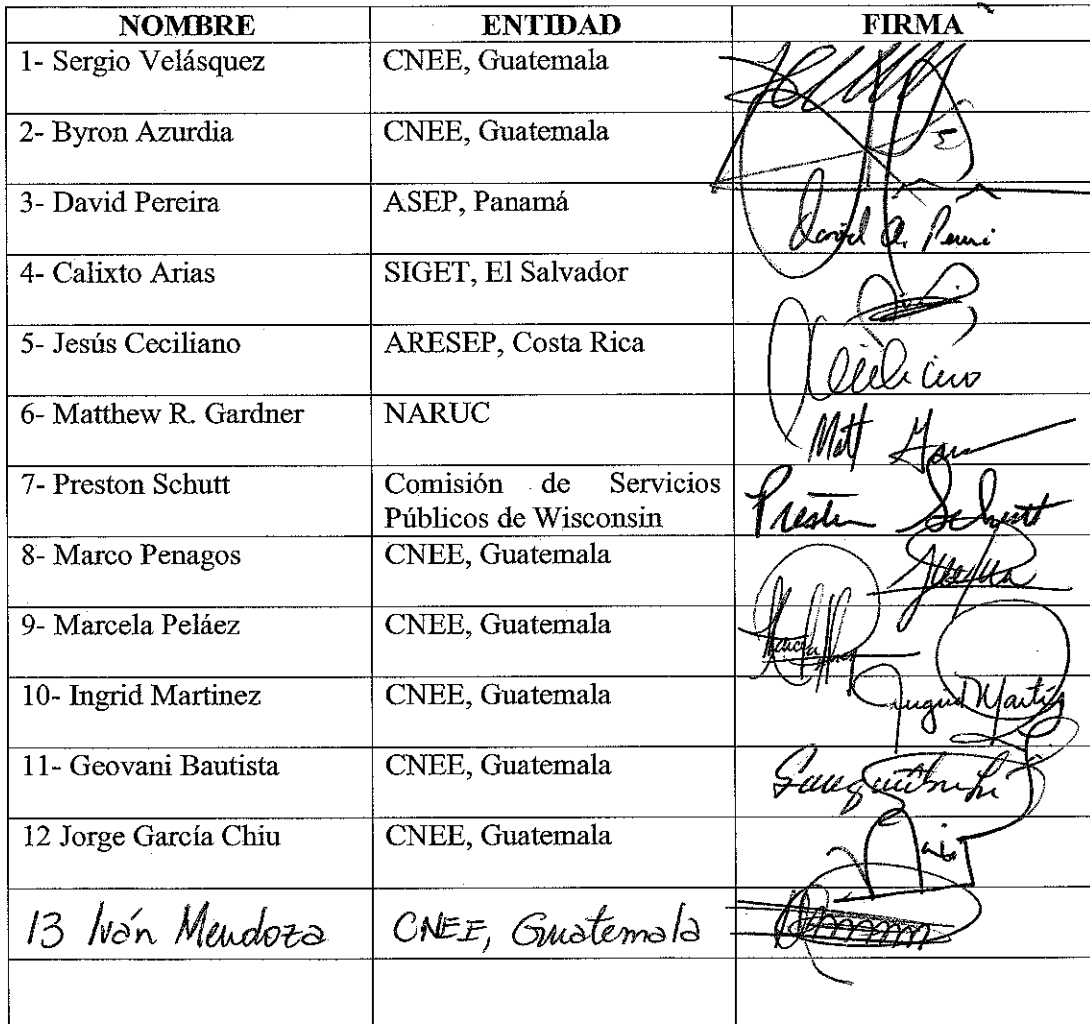 NOMBRE ENTIDAD FIRMA
1- Sergio Velásquez CNEE, Guatemala
2- Byron Azurdia CNEE, Guatemala
3- David Pereira ASEP, Panamá
4- Calixto Arias SIGET, El Salvador
5- Jesús Ceciliano ARESEP, Costa Rica
6- Matthew R. Gardner NARUC Matt
7- Preston Schutt Comisión de Servicios Preston Schutt
Públicos de Wisconsin
8- Marco Penagos CNEE, Guatemala
9- Marcela Peláez CNEE, Guatemala
10- Ingrid Martinez CNEE, Guatemala
11- Geovani Bautista CNEE, Guatemala
12 Jorge García Chiu CNEE, Guatemala
13 Iván Mendoza CNEE, Guatemala